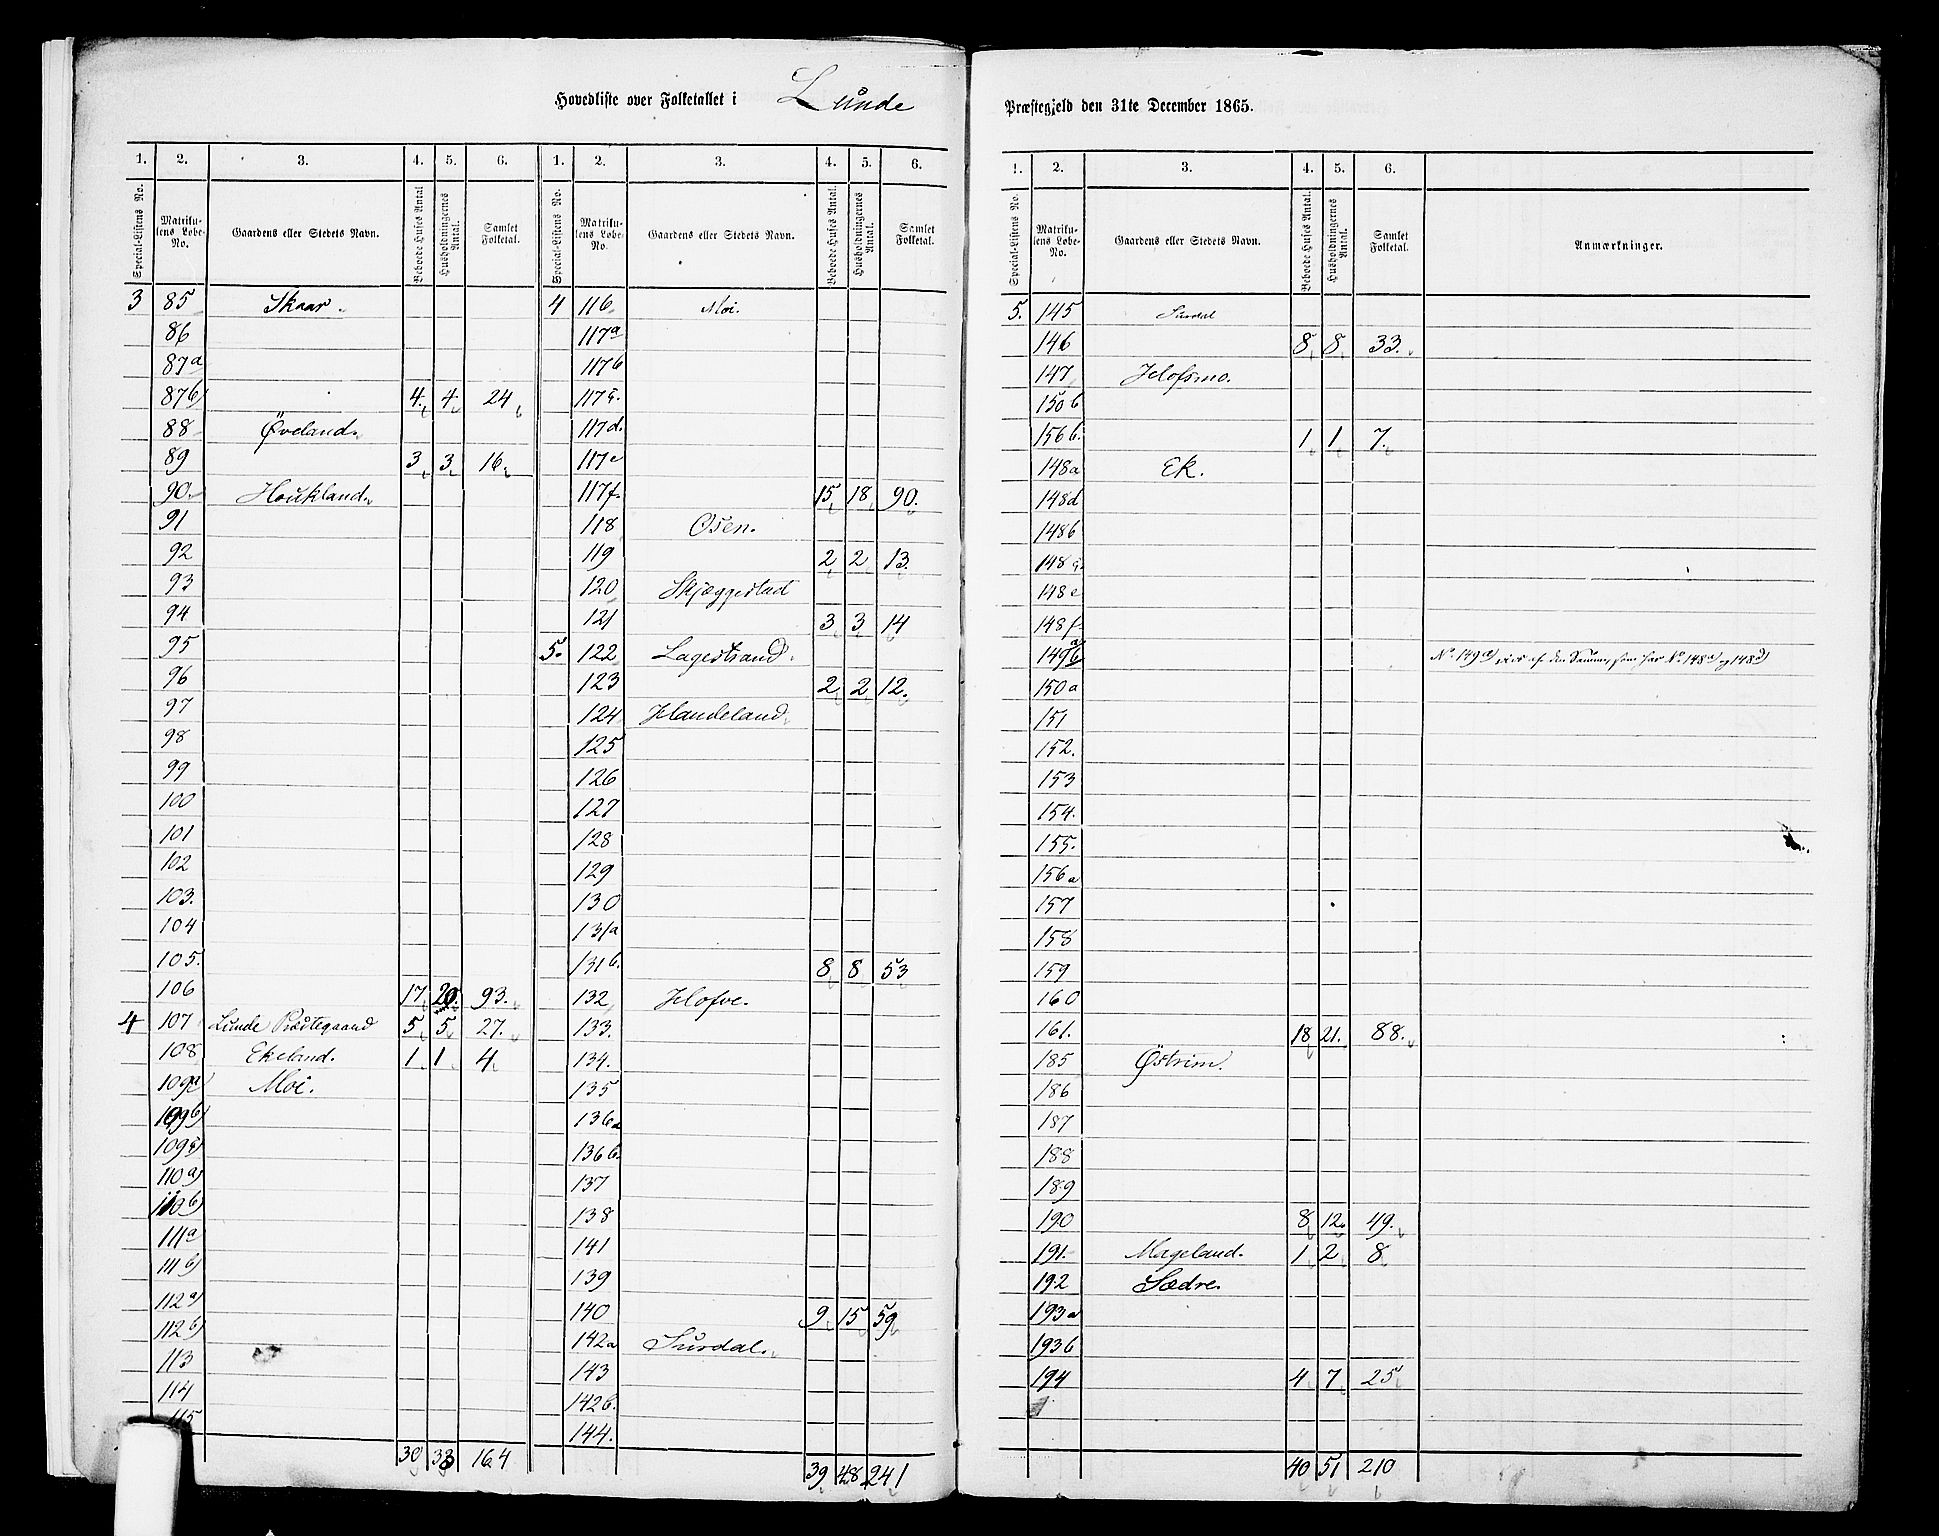 Hovedliste over Folketallet i Lunde Præstegjeld den 31te December 1865.
1. 2. 3. 4. 5. 6. 1. 2. 3. 4. 5. 6.
Special-Listens No. Matrikulens Løbe-No. Gaardens eller Stedets Navn. Beboede Huses Antal. Husholdningernes Antal. Samlet Folketal. Special-Listens No. Matrikulens Løbe-No. Gaardens eller Stedets Navn. Beboede Huses Antal. Husholdningernes Antal. Samlet Folketal.
3 85 Skaar.
86
87a
87b) 4. 4. 24
88 Øveland.
89 3 3 16
90. Houkland.
91
92
93
94
95
96
97
98
99
100
101
102
103.
104
105.
106 17 20. 93.
4 107 Lunde Præstegaard 5 5. 27.
108 Ekeland. 1 1 4.
109a) Moi.
109b)
109c)
110a)
110b)
111a
111b)
112a)
112b)
113
114
115
30 33 164
4 116 Moi.
117a
117b
117c.
117d.
117e
117f. 15 18 90.
118 Osen.
119 2 2 13.
120 Skjæggestad
121 3 3 14
5. 122 Lagestrand.
123 2 2 12.
124 Handeland.
125
126
127
128
129
130
131a
131b. 8 8 53
132 Hofve.
133.
134.
135
136a
136b.
137
138
141
139
140 9 15 59
142a Surdal.
143
142b.
144.
39 48 241
1. 2. 3. 4. 5. 6.
Special-Listens No. Matrikulens Løbe-No. Gaardens eller Stedets Navn. Beboede Huses Antal. Husholdningernes Antal. Samlet Folketal. Anmærkninger.
5. 145 Surdal
146 8 8 33.
147 Hofsmo.
150b
156b. 1 1 7.
148a Ek.
148d
148b
148c.
148e
148f.
149ab No. 149a) eies af den Samme, som har No. 148a) og 148d)
150a
151
152.
153
154.
155.
156a
157
158
159
160
161. 18 21. 88.
185 Østrim.
186
187
188
189
190 8 12 49.
191. Mageland. 1 2 8
192 Sædre.
193a
193b
194 4 7 25
40 51 210